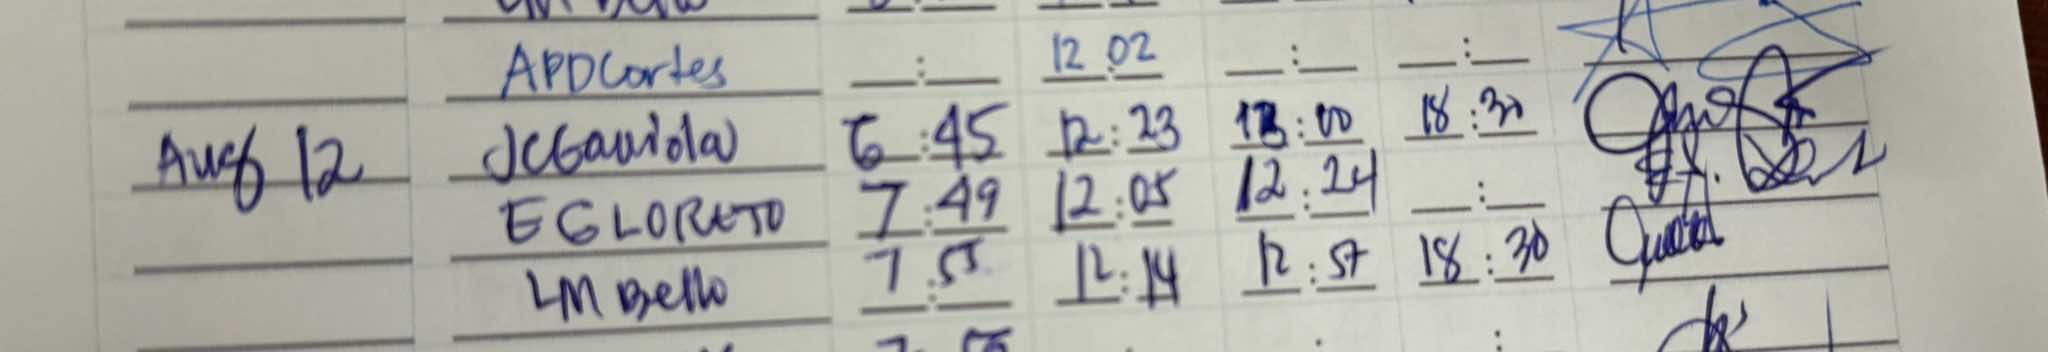 APDCortes __:__ 12:02 __:__ __:__
Aug 12 JCGaviola 6:45 12:23 13:00 18:30
EGLORETO 7:49 12:05 12:24 __:__
LM Bello 7:55 12:14 12:57 18:30